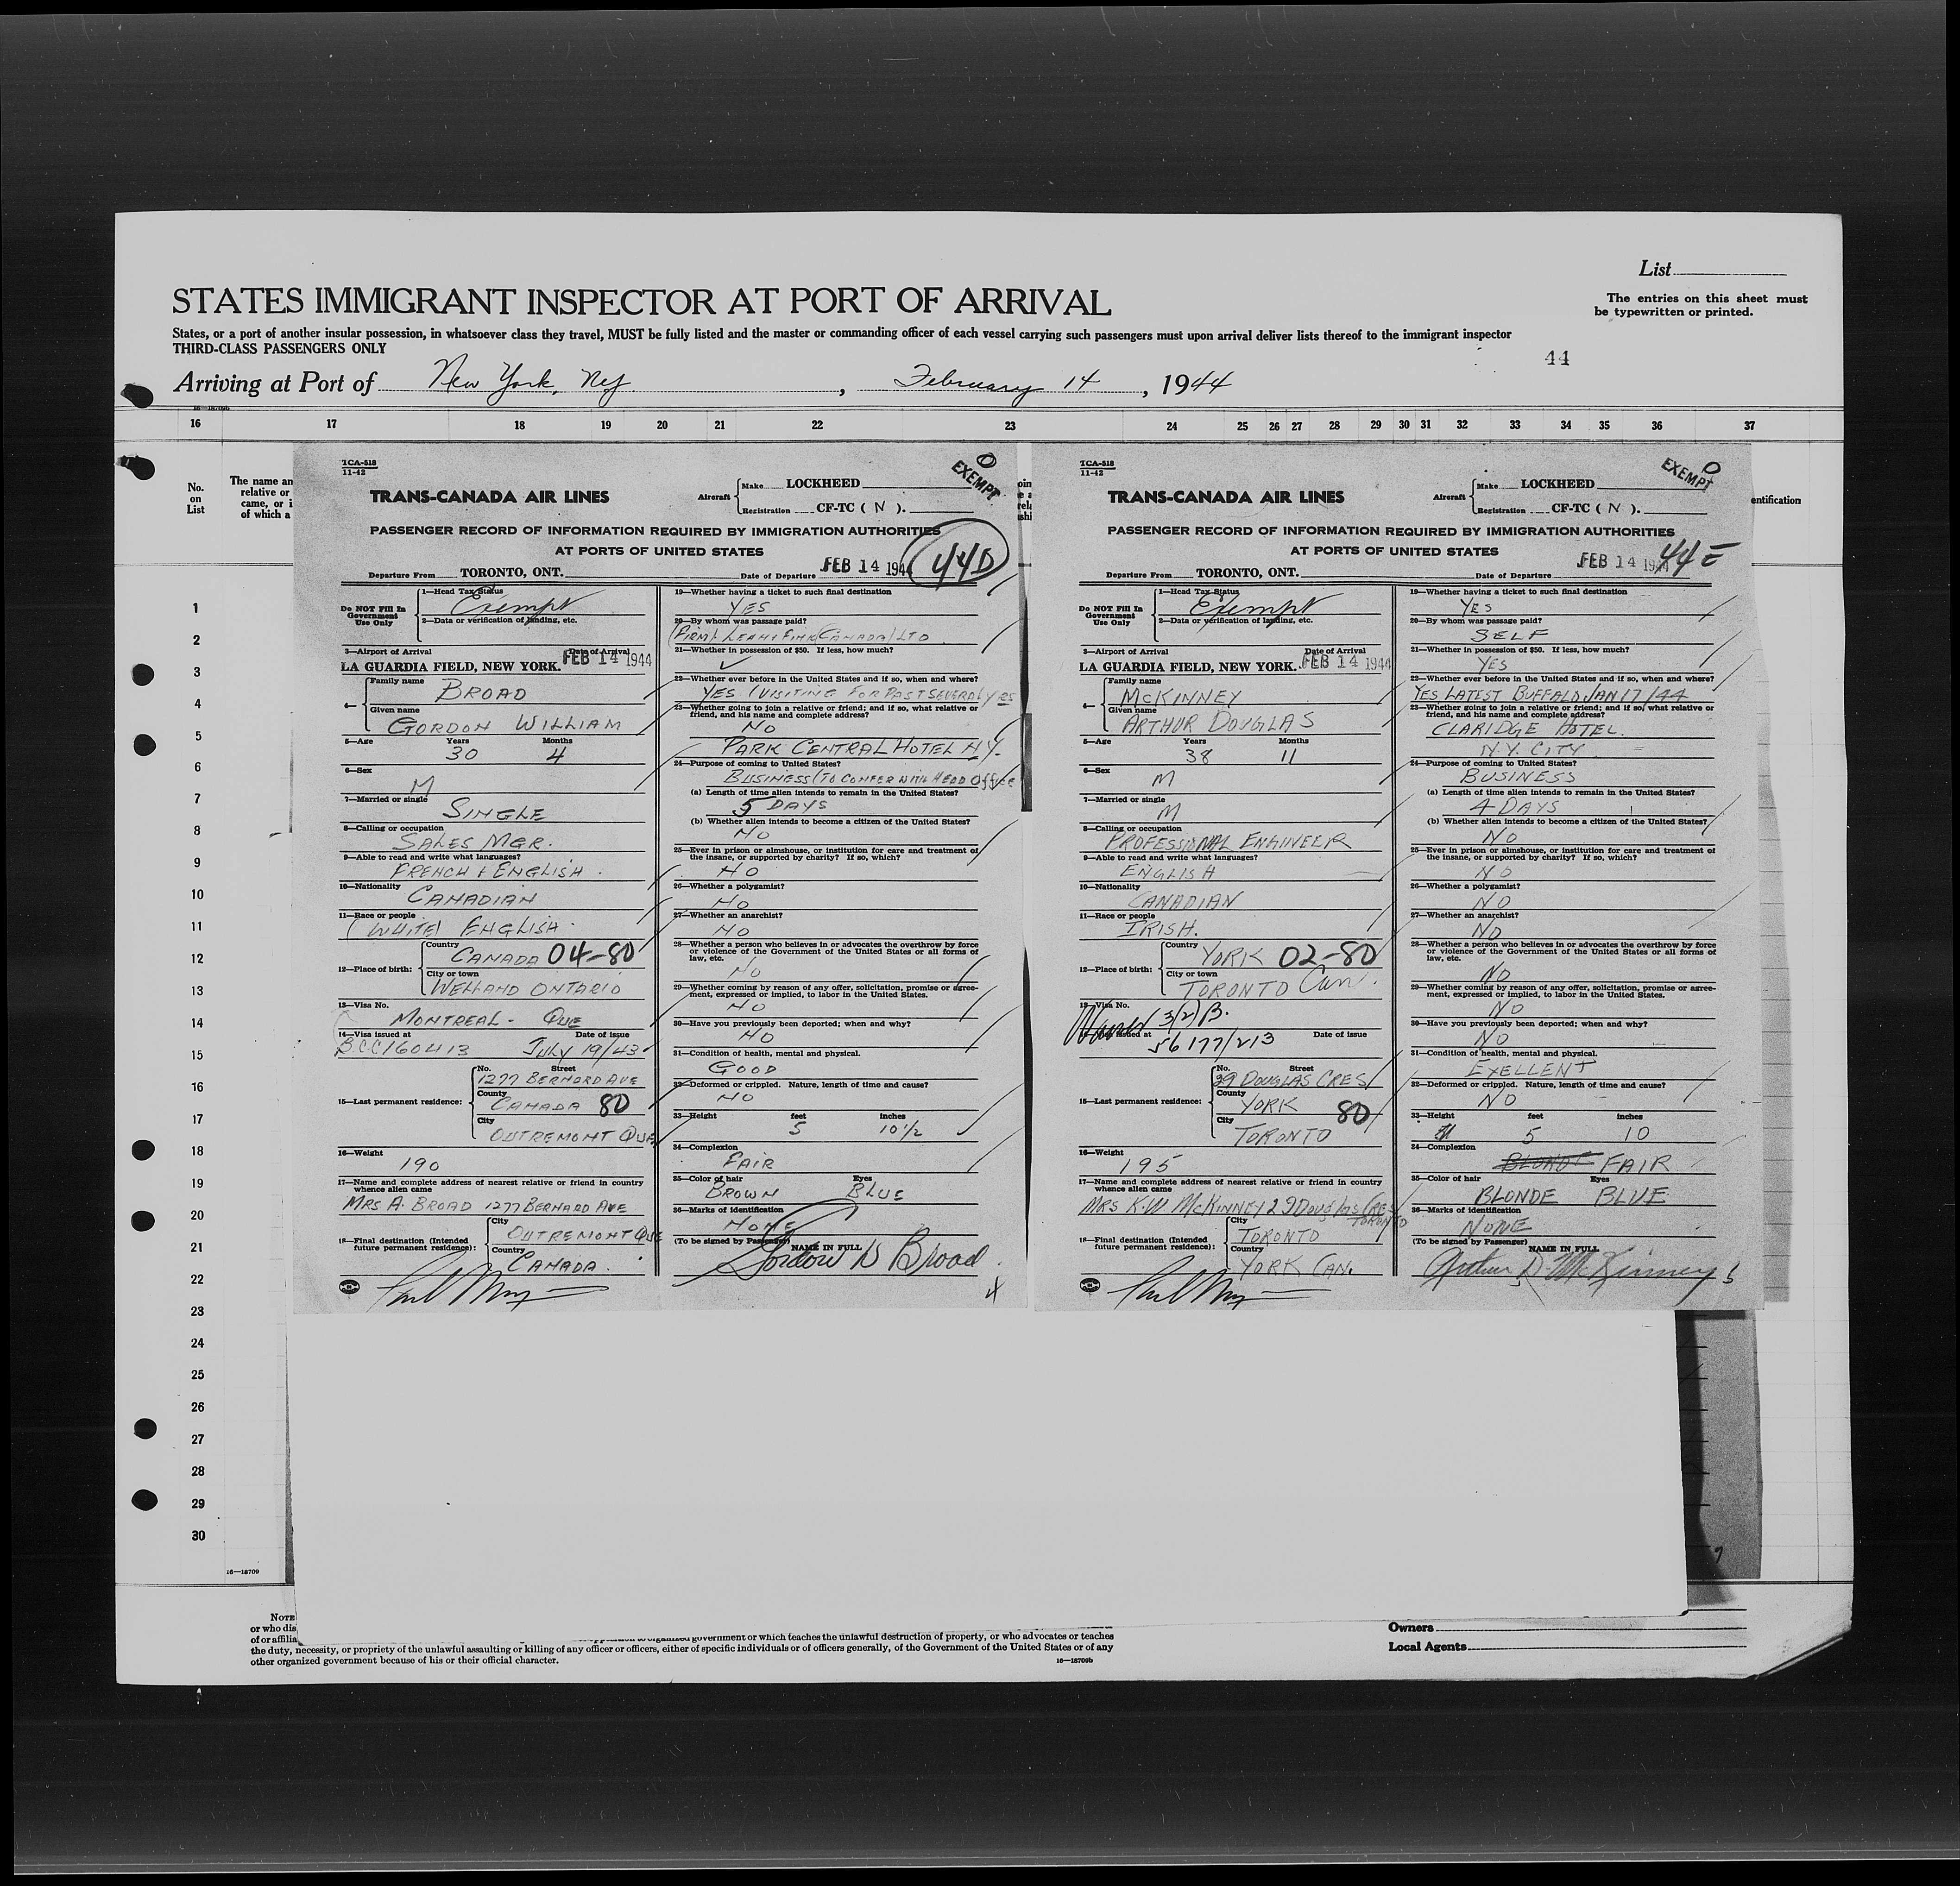 List
STATES IMMIGRANT INSPECTOR AT PORT OF ARRIVAL
The entries on this sheet must
be typewritten or printed.
States, or a port of another insular possession, in whatsoever class they travel, MUST be fully listed and the master or commanding officer of each vessel carrying such passengers must upon arrival deliver lists thereof to the immigrant inspector
THIRD-CLASS PASSENGERS ONLY
44
Arriving at Port of New York, NY, February 14, 1944
16—18709b
16 17 18 19 20 21 22 23 24 25 26 27 28 29 30 31 32 33 34 35 36 37
No.
on
List
The name an
relative or
came, or i
of which a
entification
1
2
3
4
5
6
7
8
9
10
11
12
13
14
15
16
17
18
19
20
21
22
23
24
25
26
27
28
29
30
16—18709
TCA-518
11-42
EXEMPT
TRANS-CANADA AIR LINES
Aircraft Make LOCKHEED
Registration CF-TC ( N ).
PASSENGER RECORD OF INFORMATION REQUIRED BY IMMIGRATION AUTHORITIES
AT PORTS OF UNITED STATES
44D
Departure From TORONTO, ONT. Date of Departure FEB 14 1944
Do NOT Fill In
Government
Use Only
1—Head Tax Status
Exempt
2—Data or verification of landing, etc.
3—Airport of Arrival Date of Arrival
LA GUARDIA FIELD, NEW YORK. FEB 14 1944
4— Family name
BROAD
Given name
GORDON WILLIAM
5—Age Years Months
30 4
6—Sex
M
7—Married or single
SINGLE
8—Calling or occupation
SALES MGR.
9—Able to read and write what languages?
FRENCH & ENGLISH
10—Nationality
CANADIAN
11—Race or people
(WHITE) ENGLISH
12—Place of birth:
Country
CANADA 04-80
City or town
WELLAND ONTARIO
13—Visa No.
MONTREAL - QUE
14—Visa issued at Date of issue
BCC160413 JULY 19/43
15—Last permanent residence:
No. Street
1277 BERNARD AVE
County
CANADA 80
City
OUTREMONT QUE
16—Weight
190
17—Name and complete address of nearest relative or friend in country
whence alien came
MRS A. BROAD 1277 BERNARD AVE
18—Final destination (Intended
future permanent residence):
City
OUTREMONT QUE
Country
CANADA.
19—Whether having a ticket to such final destination
YES
20—By whom was passage paid?
(FIRM) LEHN & FINK (CANADA) LTD
21—Whether in possession of $50. If less, how much?
✓
22—Whether ever before in the United States and if so, when and where?
YES (VISITING FOR PAST SEVERAL yrs
23—Whether going to join a relative or friend; and if so, what relative or
friend, and his name and complete address?
NO
PARK CENTRAL HOTEL NY.
24—Purpose of coming to United States?
BUSINESS (TO CONFER WITH HEAD Office
(a) Length of time alien intends to remain in the United States?
5 DAYS
(b) Whether alien intends to become a citizen of the United States?
NO
25—Ever in prison or almshouse, or institution for care and treatment of
the insane, or supported by charity? If so, which?
NO
26—Whether a polygamist?
NO
27—Whether an anarchist?
NO
28—Whether a person who believes in or advocates the overthrow by force
or violence of the Government of the United States or all forms of
law, etc.
NO
29—Whether coming by reason of any offer, solicitation, promise or agree-
ment, expressed or implied, to labor in the United States.
NO
30—Have you previously been deported; when and why?
NO
31—Condition of health, mental and physical.
GOOD
32—Deformed or crippled. Nature, length of time and cause?
NO
33—Height feet inches
5 10½
34—Complexion
FAIR
35—Color of hair Eyes
BROWN BLUE
36—Marks of identification
NONE
(To be signed by Passenger) NAME IN FULL
Gordon W Broad
TCA-518
11-42
EXEMPT
TRANS-CANADA AIR LINES
Aircraft Make LOCKHEED
Registration CF-TC ( N ).
PASSENGER RECORD OF INFORMATION REQUIRED BY IMMIGRATION AUTHORITIES
AT PORTS OF UNITED STATES
44E
Departure From TORONTO, ONT. Date of Departure FEB 14 1944
Do NOT Fill In
Government
Use Only
1—Head Tax Status
Exempt
2—Data or verification of landing, etc.
3—Airport of Arrival Date of Arrival
LA GUARDIA FIELD, NEW YORK. FEB 14 1944
4— Family name
McKINNEY
Given name
ARTHUR DOUGLAS
5—Age Years Months
38 11
6—Sex
M
7—Married or single
M
8—Calling or occupation
PROFESSIONAL ENGINEER
9—Able to read and write what languages?
ENGLISH
10—Nationality
CANADIAN
11—Race or people
IRISH.
12—Place of birth:
Country
YORK 02-80
City or town
TORONTO Can.
13—Visa No.
Waived 3(2)B.
14—Visa issued at Date of issue
56177/213
15—Last permanent residence:
No. Street
29 DOUGLAS CRES
County
YORK 80
City
TORONTO
16—Weight
195
17—Name and complete address of nearest relative or friend in country
whence alien came
MRS K.W McKINNEY 29 Douglas CRES
TORONTO
18—Final destination (Intended
future permanent residence):
City
TORONTO
Country
YORK CAN.
19—Whether having a ticket to such final destination
YES
20—By whom was passage paid?
SELF
21—Whether in possession of $50. If less, how much?
YES
22—Whether ever before in the United States and if so, when and where?
YES LATEST BUFFALO JAN 17/44
23—Whether going to join a relative or friend; and if so, what relative or
friend, and his name and complete address?
CLARIDGE HOTEL.
N.Y. CITY
24—Purpose of coming to United States?
BUSINESS
(a) Length of time alien intends to remain in the United States?
4 DAYS
(b) Whether alien intends to become a citizen of the United States?
NO
25—Ever in prison or almshouse, or institution for care and treatment of
the insane, or supported by charity? If so, which?
NO
26—Whether a polygamist?
NO
27—Whether an anarchist?
NO
28—Whether a person who believes in or advocates the overthrow by force
or violence of the Government of the United States or all forms of
law, etc.
NO
29—Whether coming by reason of any offer, solicitation, promise or agree-
ment, expressed or implied, to labor in the United States.
NO
30—Have you previously been deported; when and why?
NO
31—Condition of health, mental and physical.
EXELLENT
32—Deformed or crippled. Nature, length of time and cause?
NO
33—Height feet inches
5 10
34—Complexion
BLONDE FAIR
35—Color of hair Eyes
BLONDE BLUE
36—Marks of identification
NONE
(To be signed by Passenger) NAME IN FULL
Arthur D. McKinney
NOTE
or who dis
of or affilia
organized government or which teaches the unlawful destruction of property, or who advocates or teaches
the duty, necessity, or propriety of the unlawful assaulting or killing of any officer or officers, either of specific individuals or of officers generally, of the Government of the United States or of any
other organized government because of his or their official character.
16—18709b
Owners
Local Agents